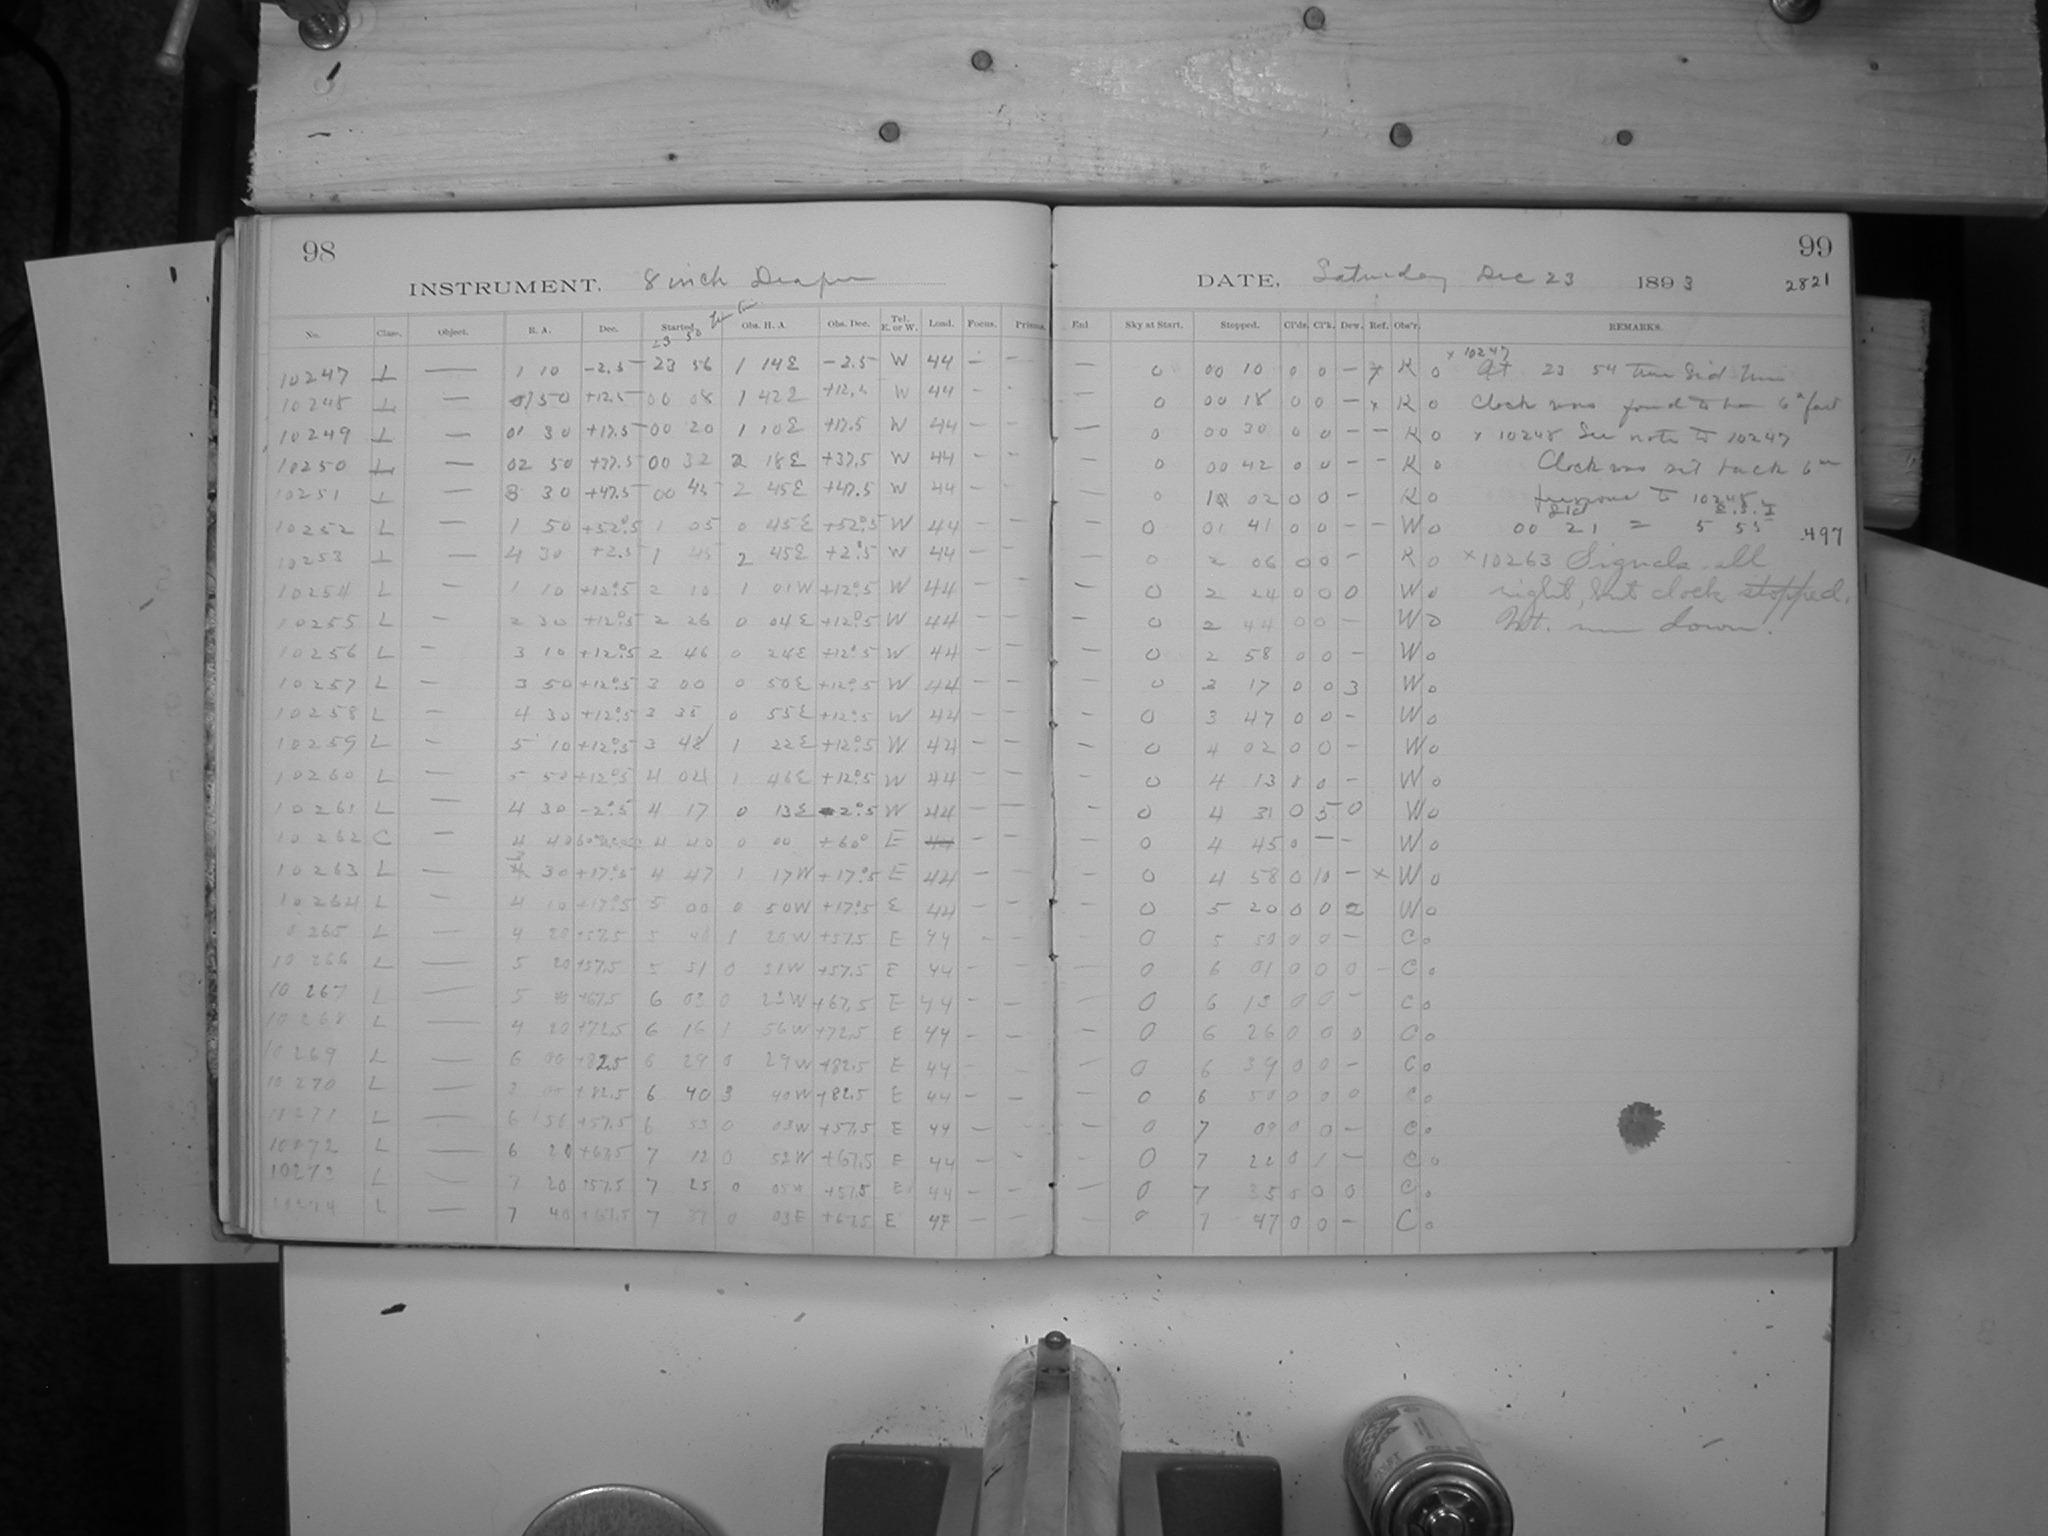 98
INSTRUMENT. 8 inch Draper
No. Class. Object. R. A. Dec. Started. Obs. H. A. Obs. Dec. Tel. E. or W. Load. Focus. Prisms.
23 50
10247 L — 1 10 -2.5 23 56 1 14E -2.5 W 44 — —
10248 L — 01 50 +12.5 00 08 1 42E +12.5 W 44 — -
10249 L — 01 30 +17.5 00 20 1 10E +17.5 W 44 — —
10250 L — 02 50 +37.5 00 32 2 18E +37.5 W 44 — —
10251 L — 3 30 +47.5 00 45 2 45E +47.5 W 44 — —
10252 L — 1 50 +52°.5 1 05 0 45E +52°.5 W 44 — —
10253 L — 4 30 +2.5 1 45 2 45E +2°.5 W 44 — —
10254 L — 1 10 +12°.5 2 10 1 01W +12°.5 W 44 — —
10255 L — 2 30 +12°.5 2 26 0 04E +12°.5 W 44 — —
10256 L — 3 10 +12°.5 2 46 0 24E +12°.5 W 44 — —
10257 L — 3 50 +12°.5 3 00 0 50E +12°.5 W 44 — —
10258 L — 4 30 +12°.5 3 35 0 55E +12°.5 W 44 — —
10259 L — 5 10 +12°.5 3 48 1 22E +12°.5 W 44 — —
10260 L — 5 50 +12°.5 4 04 1 46E +12°.5 W 44 — —
10261 L — 4 30 -2°.5 4 17 0 13E -2°.5 W 44 — —
10262 C — 4 40 4 40 0 00 +60° E 44 — —
10263 L — 3 30 +17°.5 4 47 1 17W +17°.5 E 44 — —
10264 L — 4 10 +17°.5 5 00 0 50W +17°.5 E 44 — —
10265 L — 4 20 +57.5 5 40 1 20W +57.5 E 44 — —
10266 L — 5 20 +57.5 5 51 0 31W +57.5 E 44 — —
10267 L — 5 +67.5 6 03 0 23W +67.5 E 44 — —
10268 L — 4 20 +72.5 6 16 1 56W +72.5 E 44 — —
10269 L — 6 00 +82.5 6 29 0 29W +82.5 E 44 — —
10270 L — 3 00 +82.5 6 40 3 40W +82.5 E 44 — —
10271 L — 6 50 +57.5 6 53 0 03W +57.5 E 44 — —
10272 L — 6 20 +67.5 7 12 0 52W +67.5 E 44 — —
10273 L — 7 20 +57.5 7 25 0 05W +57.5 E 44 — —
10274 L — 7 40 +67.5 7 37 0 03E +67.5 E 44 — —
99
DATE, Saturday Dec 23 1893 2821
End Sky at Start. Stopped. Cl'ds. Cl'k. Dew. Ref. Obs'r. REMARKS.
— 0 00 10 0 0 — x K o
— 0 00 18 0 0 — x K o
— 0 00 30 0 0 — — K o
— 0 00 42 0 0 — — K o
— 0 1 02 0 0 — K o
— 0 01 41 0 0 — — W o
— 0 2 06 0 0 — K o
— 0 2 24 0 0 0 W o
— 0 2 44 0 0 — W o
— 0 2 58 0 0 — W o
— 0 3 17 0 0 3 W o
— 0 3 47 0 0 — W o
— 0 4 02 0 0 — W o
— 0 4 13 0 0 — W o
— 0 4 31 0 5 0 W o
— 0 4 45 0 — — W o
— 0 4 58 0 10 — x W o
— 0 5 20 0 0 2 W o
— 0 5 50 0 0 — C o
— 0 6 01 0 0 0 — C o
— 0 6 13 0 0 — C o
— 0 6 26 0 0 0 C o
— 0 6 39 0 0 — C o
— 0 6 50 0 0 0 C o
— 0 7 09 0 0 — C o
— 0 7 22 0 1 — C o
— 0 7 35 0 0 0 C o
— 0 7 47 0 0 — C o
x 10247
At 23 54 true Sid time
Clock was found to be 6m fast
x 10248 See note to 10247
Clock was set back 6m
previous to 10248
Sid E.S.T
00 21 = 5 55 .497
x 10263 Signals all
right, but clock stopped.
Wt. run down.